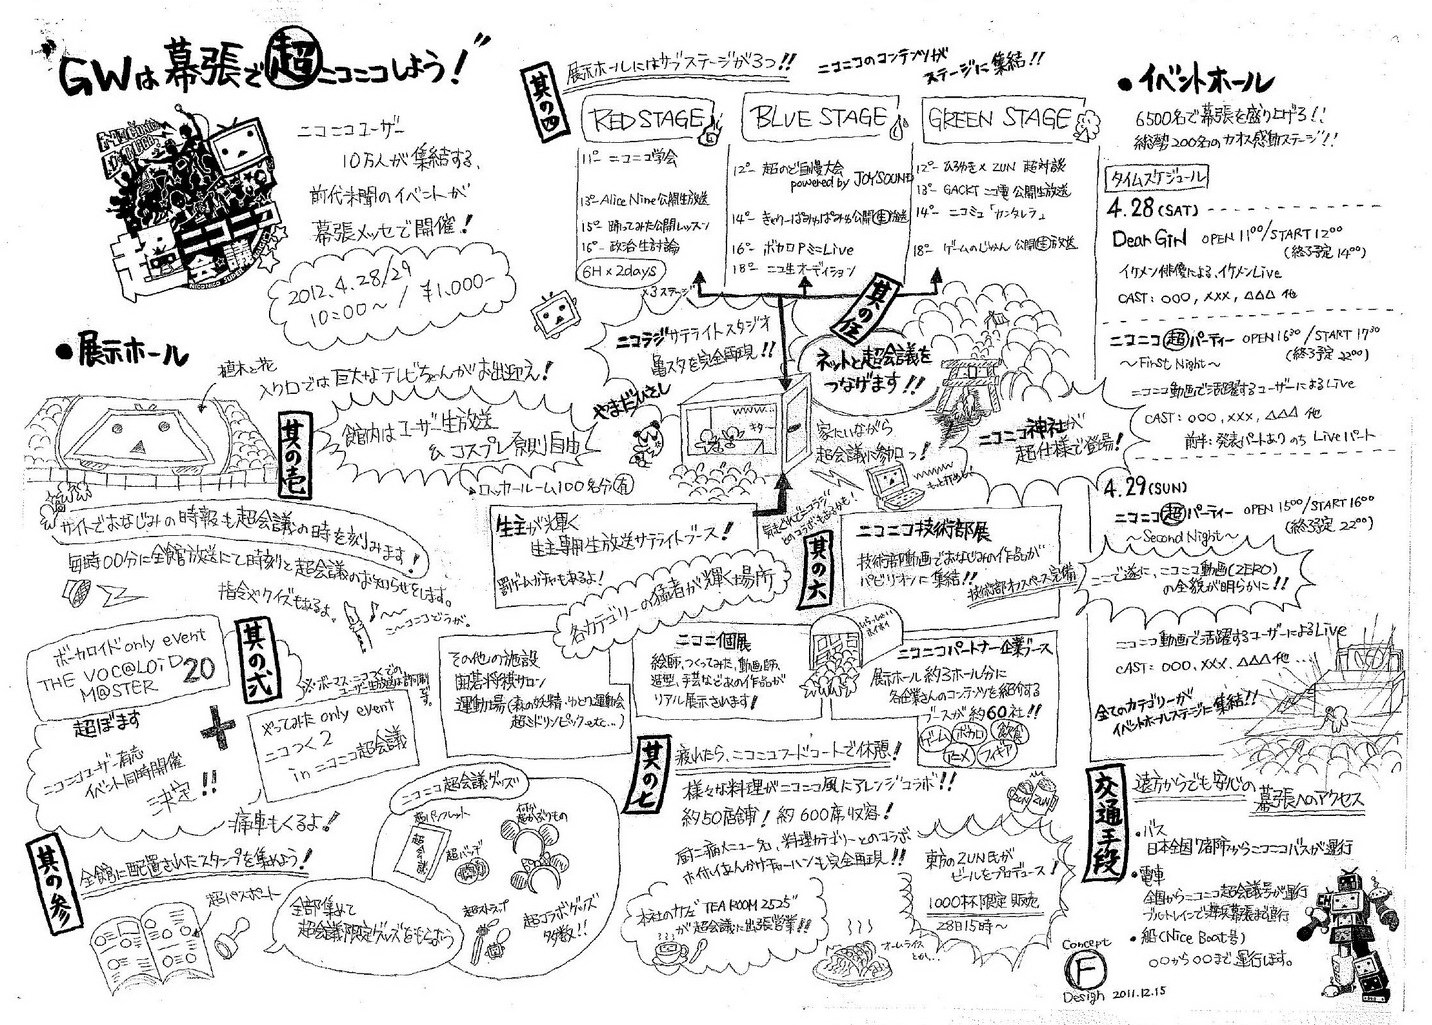 "GWは幕張で超ニコニコしよう!"
ニコニコユーザー
10万人が集結する、
前代未聞のイベントが
幕張メッセで開催!
2012.4.28/29
10:00〜 / ¥1,000-
ニコニコ
超会議
其の四
展示ホールにはサブステージが3つ!!
ニコニコのコンテンツが
ステージに集結!!
RED STAGE
11°° ニコニコ学会
13°° Alice Nine公開生放送
15°° 踊ってみた公開レッスン
16°° 政治生討論
6H×2days
×3ステージ
BLUE STAGE
12°° 超のど自慢大会
powered by JOYSOUND
14°° きゃりーぱみゅぱみゅ公開生放送
16°° ボカロPミニLive
18°° ニコ生オーディション
GREEN STAGE
12°° ひろゆき×ZUN 超対談
13°° GACKT ニコ電 公開生放送
14°° ニコミュ「カンタレラ」
18°° ゲームのじかん 公開生放送
●イベントホール
6500名で幕張を盛り上げろ!!
総勢200名のカオス感動ステージ!!
タイムスケジュール
4.28(SAT)
Dear Girl OPEN 11°°/START 12°°
(終了予定 14°°)
イケメン俳優による、イケメンLive
CAST: ○○○, ×××, △△△ 他
ニコニコ超パーティー OPEN 16³⁰/START 17³⁰
〜First Night〜 (終了予定 22°°)
ニコニコ動画で活躍するユーザーによるLive
CAST: ○○○, ×××, △△△ 他
前半:発表パートあり のち Liveパート
4.29(SUN)
ニコニコ超パーティー OPEN 15°°/START 16°°
〜Second Night〜 (終了予定 22°°)
ここで遂に、ニコニコ動画(ZERO)
の全貌が明らかに!!
ニコニコ動画で活躍するユーザーによるLive
CAST: ○○○, ×××, △△△ 他
全てのカテゴリーが
イベントホールステージに集結!!
●展示ホール
植木と花
入り口では巨大なテレビちゃんがお出迎え!
其の壱
館内はユーザー生放送
& コスプレ原則自由
ロッカールーム100名分有
サイトでおなじみの時報も超会議の時を刻みます!
毎時00分に全館放送にて時刻と超会議のお知らせをします。
指令やクイズもあるよ。
〜ニコニコどうが♪
ニコラジサテライトスタジオ
亀スタを完全再現!!
やまだひさし
www…
キター
其の伍
ネットと超会議を
つなげます!!
家にいながら
超会議に参加っ!
wwwww
ニコニコ神社が
超仕様で登場!
生主が輝く
生主専用生放送サテライトブース!
罰ゲームガチャもあるよ!
各カテゴリーの猛者が輝く場所
其の六
ニコニコ技術部展
技術部動画でおなじみの作品が
パビリオンに集結!!
技術部オフスペース完備
ボーカロイド only event
THE VOC@LOiD
M@STER 20
超ぼます
其の弐
やってみた only event
ニコつく2
in ニコニコ超会議
ニコニコユーザー有志
イベント同時開催
決定!!
痛車もくるよ!
その他の施設
囲碁将棋サロン
運動場(森の妖精・ゆとり運動会
超ミドリンピック…etc…)
ニコニコ個展
絵師、つくってみた、動画師、
造型、手芸などあの作品が
リアル展示されます!
ニコニコパートナー企業ブース
展示ホール約3ホール分に
各企業さんのコンテンツを紹介する
ブースが約60社!!
ゲーム
ボカロ
飲食
アニメ
フィギア
其の七
疲れたら、ニコニコフードコートで休憩!
様々な料理がニコニコ風にアレンジコラボ!!
約50店舗! 約600席収容!
厨二病メニュー名、料理カテゴリーとのコラボ
ホイホイあんかけチャーハンも完全再現!!
本社のカフェ"TEA ROOM 2525"
が"超会議に出張営業!!
オムライス
とか…
ZUN ZUN
東方のZUN氏が
ビールをプロデュース!
1000杯限定 販売
28日15時〜
其の参
全館に配置されたスタンプを集めよう!
超パスポート
全部集めて
超会議限定グッズをもらおう
ニコニコ超会議グッズ
超パンフレット
超会議
超バッヂ
超かぶりもの
超ストラップ
超コラボグッズ
多数!!
交通手段
遠方からでも安心の
幕張へのアクセス
・バス
日本全国7都市からニコニコバスが運行
・電車
全国からニコニコ超会議号が運行
ブルトレインで海浜幕張まで直行
・船(Nice Boat号)
○○から○○まで運行します。
Concept
F
Design 2011.12.15